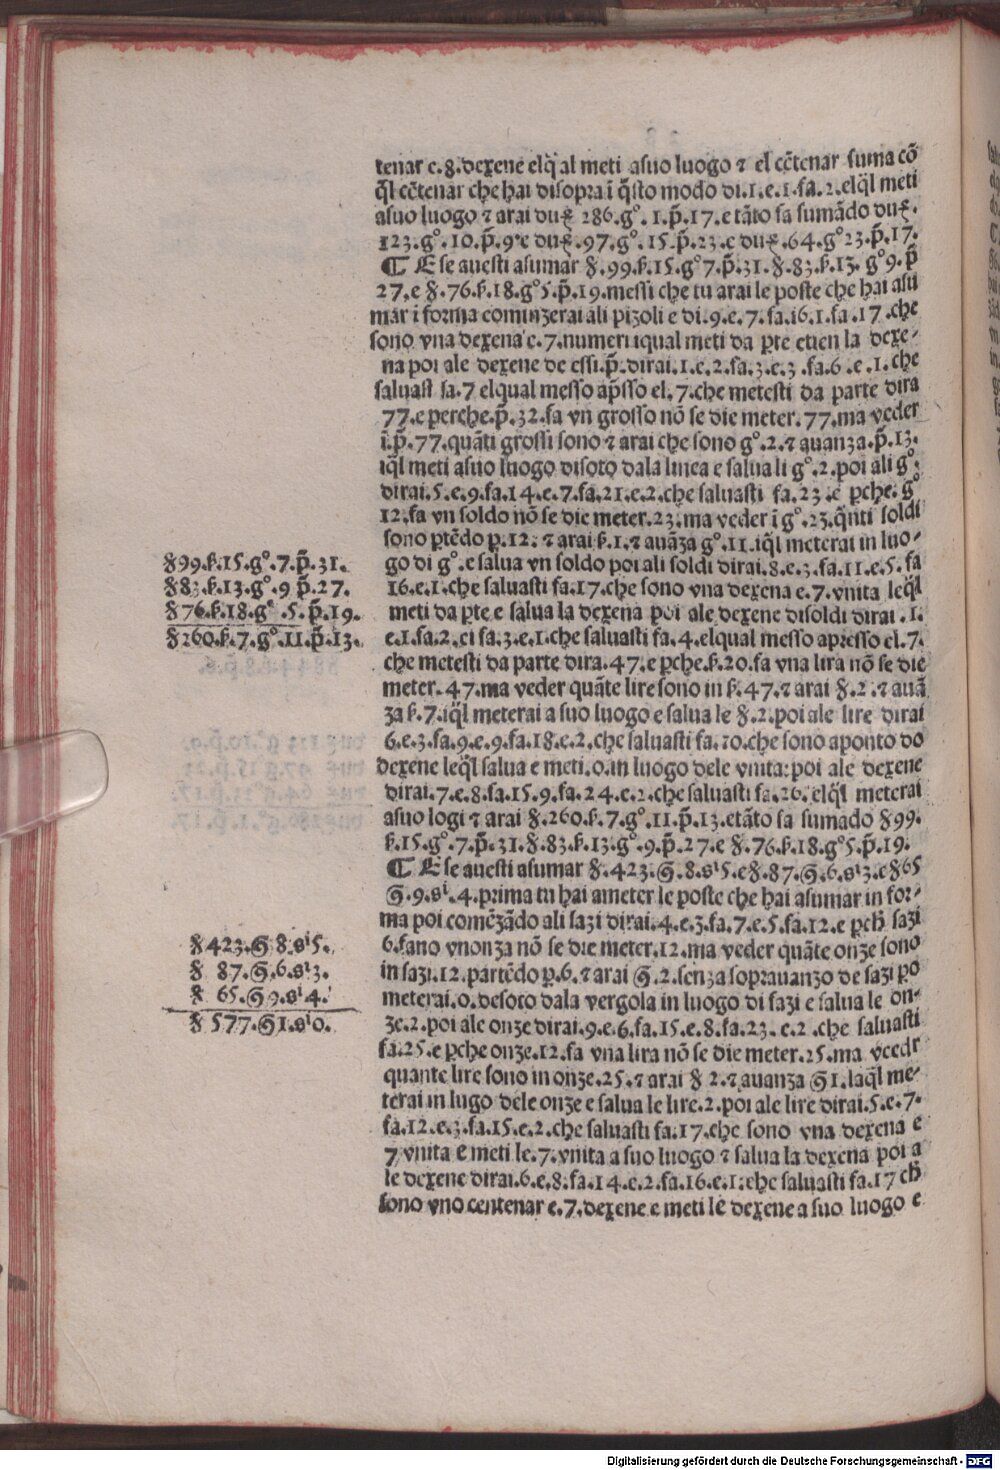 tenar e.8.dexene elq̃l al meti asuo luogo ⁊ el cẽtenar suma cõ
q̃l cẽtenar che hai disopra ĩ q̃sto modo di.1.e.1.fa.2.elq̃l meti
asuo luogo ⁊ arai duꝝ 286.g°.1.p̃.17.e tãto fa sumãdo duꝝ.
123.g°.10.p̃.9.e duꝝ.97.g°.15.p̃.23.e duꝝ.64.g°23.p̃.17.
¶ E se auesti asumar ꝸ.99.ꝭ.15.g°7.p̃.31.ꝸ.83.ꝭ.13.g°9.p̃
27.e ꝸ.76.ꝭ.18.g°5.p̃.19.messi che tu arai le poste che hai asu
mar ĩ forma cominzerai ali pizoli e di.9.e.7.fa.16.1.fa.17.che
sono vna dexena e.7.numeri iqual meti da ꝑte etien la dexe-
na poi ale dexene de essi.p̃.dirai.1.e.2.fa.3.e.3.fa.6.e.1.che
saluasti fa.7 elqual messo ap̃sso el.7.che metesti da parte dira
77.e perche.p̃.32.fa vn grosso nõ se die meter.77.ma veder
ĩ.p̃.77.quãti grossi sono ⁊ arai che sono g°.2.⁊ auanza.p̃.13.
iq̃l meti asuo luogo disoto dala linea e salua li g°.2.poi ali g°:
dirai.5.e.9.fa.14.e.7.fa.21.e.2.che saluasti fa.23.e ꝑche.g°
12.fa vn soldo nõ se die meter.23.ma veder ĩ g°.23.q̃nti soldi
sono ꝑtẽdo ꝑ.12.⁊ arai ꝭ.1.⁊ auãza g°.11.iq̃l meterai in luo-
go di g°.e salua vn soldo poi ali soldi dirai.8.e.3.fa.11.e.5.fa
16.e.1.che saluasti fa.17.che sono vna dexena e.7.vnita leq̃l
meti da ꝑte e salua la dexena poi ale dexene disoldi dirai.1.
e.1.fa.2.ei fa.3.e.1.che saluasti fa.4.elqual messo apresso el.7.
che metesti da parte dira.47.e ꝑche.ꝭ.20.fa vna lira nõ se die
meter.47.ma veder quãte lire sono in ꝭ.47.⁊ arai ꝸ.2.⁊ auã
za ꝭ.7.iq̃l meterai a suo luogo e salua le ꝸ.2.poi ale lire dirai
6.e.3.fa.9.e.9.fa.18.e.2.che saluasti fa.20.che sono aponto do
dexene leq̃l salua e meti.0.in luogo dele vnita:poi ale dexene
dirai.7.e.8.fa.15.9.fa.24.e.2.che saluasti fa.26.elq̃l meterai
asuo logi ⁊ arai ꝸ.260.ꝭ.7.g°.11.p̃.13.etãto fa sumado ꝸ99.
ꝭ.15.g°.7.p̃.31.ꝸ.83.ꝭ.13.g°.9.p̃.27.e ꝸ.76.ꝭ.18.g°5.p̃.19.
¶ E se auesti asumar ꝸ.423.Ꝯ.8.sⁱ5.eꝸ.87.Ꝯ.6.sⁱ3.eꝸ65
Ꝯ.9.sⁱ.4.prima tu hai ameter le poste che hai asumar in for-
ma poi comẽzãdo ali sazi dirai.4.e.3.fa.7.e.5.fa.12.e ꝑch̃ sazi
6.fano vnonza nõ se die meter.12.ma veder quãte onze sono
in sazi.12.partẽdo ꝑ.6.⁊ arai Ꝯ.2.senza soprauanzo de sazi po
meterai.0.desoto dala vergola in luogo di sazi e salua le on-
ze.2.poi ale onze dirai.9.e.6.fa.15.e.8.fa.23.e.2.che saluasti
fa.25.e ꝑche onze.12.fa vna lira nõ se die meter.25.ma veedr
quante lire sono in onze.25.⁊ arai ꝸ 2.⁊ auanza Ꝯ1.laq̃l me-
terai in lugo dele onze e salua le lire.2.poi ale lire dirai.5.e.7.
fa.12.e.3.fa.15.e.2.che saluasti fa.17.che sono vna dexena e
7 vnita e meti le.7.vnita a suo luogo ⁊ salua la dexena poi a
le dexene dirai.6.e.8.fa.14.e.2.fa.16.e.1.che saluasti fa.17 ch̃
sono vno centenar e.7.dexene e meti le dexene a suo luogo e
ꝸ99.ꝭ.15.g°.7.p̃.31.
ꝸ83.ꝭ.13.g°.9 p̃.27.
ꝸ76.ꝭ.18.g°.5.p̃.19.
ꝸ260.ꝭ.7.g°.11.p̃.13.
ꝸ423.Ꝯ8.sⁱ5.
ꝸ 87.Ꝯ.6.sⁱ3.
ꝸ 65.Ꝯ9.sⁱ4.
ꝸ 577.Ꝯ1.sⁱ0.
Digitalisierung gefördert durch die Deutsche Forschungsgemeinschaft - DFG